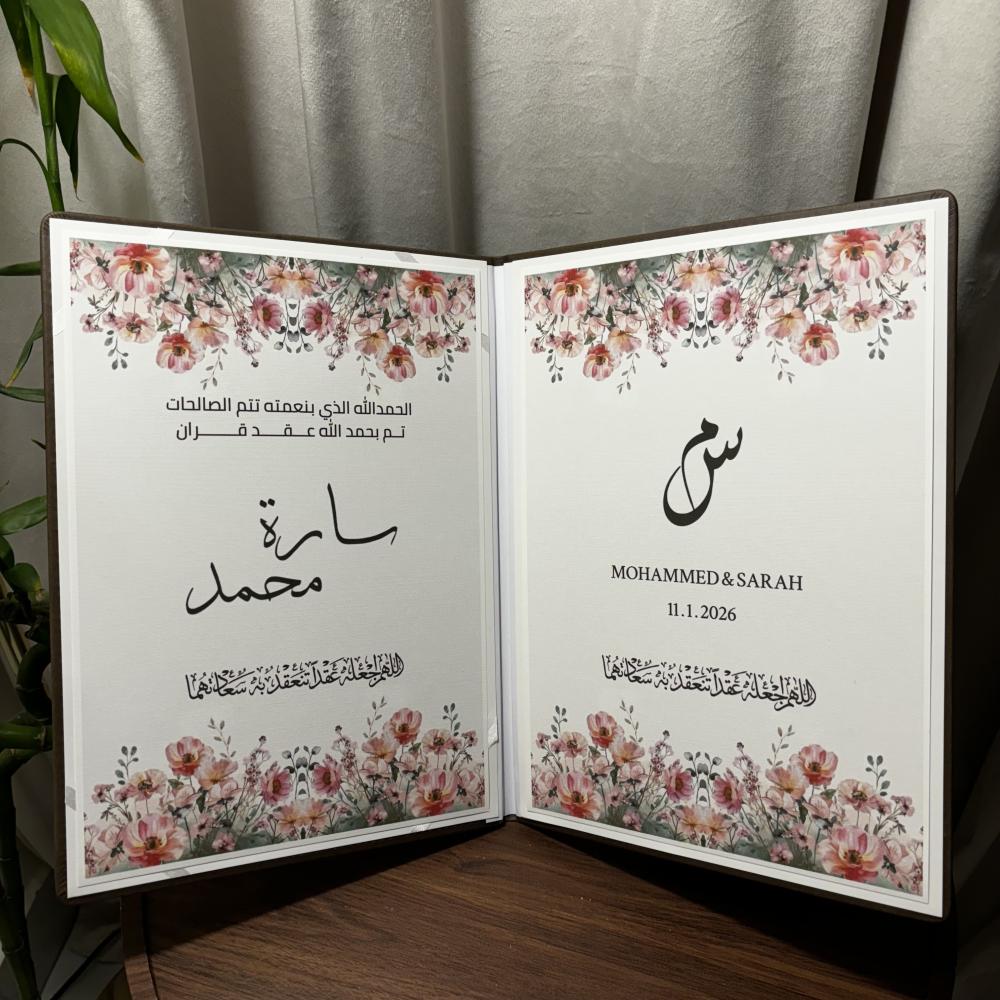 الحمدالله الذي بنعمته تتم الصالحات
تم بحمد الله عقد قران
سارة
محمد
اللهم اجعله عقدا تنعقد به سعادتهما
س م
MOHAMMED & SARAH
11.1.2026
اللهم اجعله عقدا تنعقد به سعادتهما